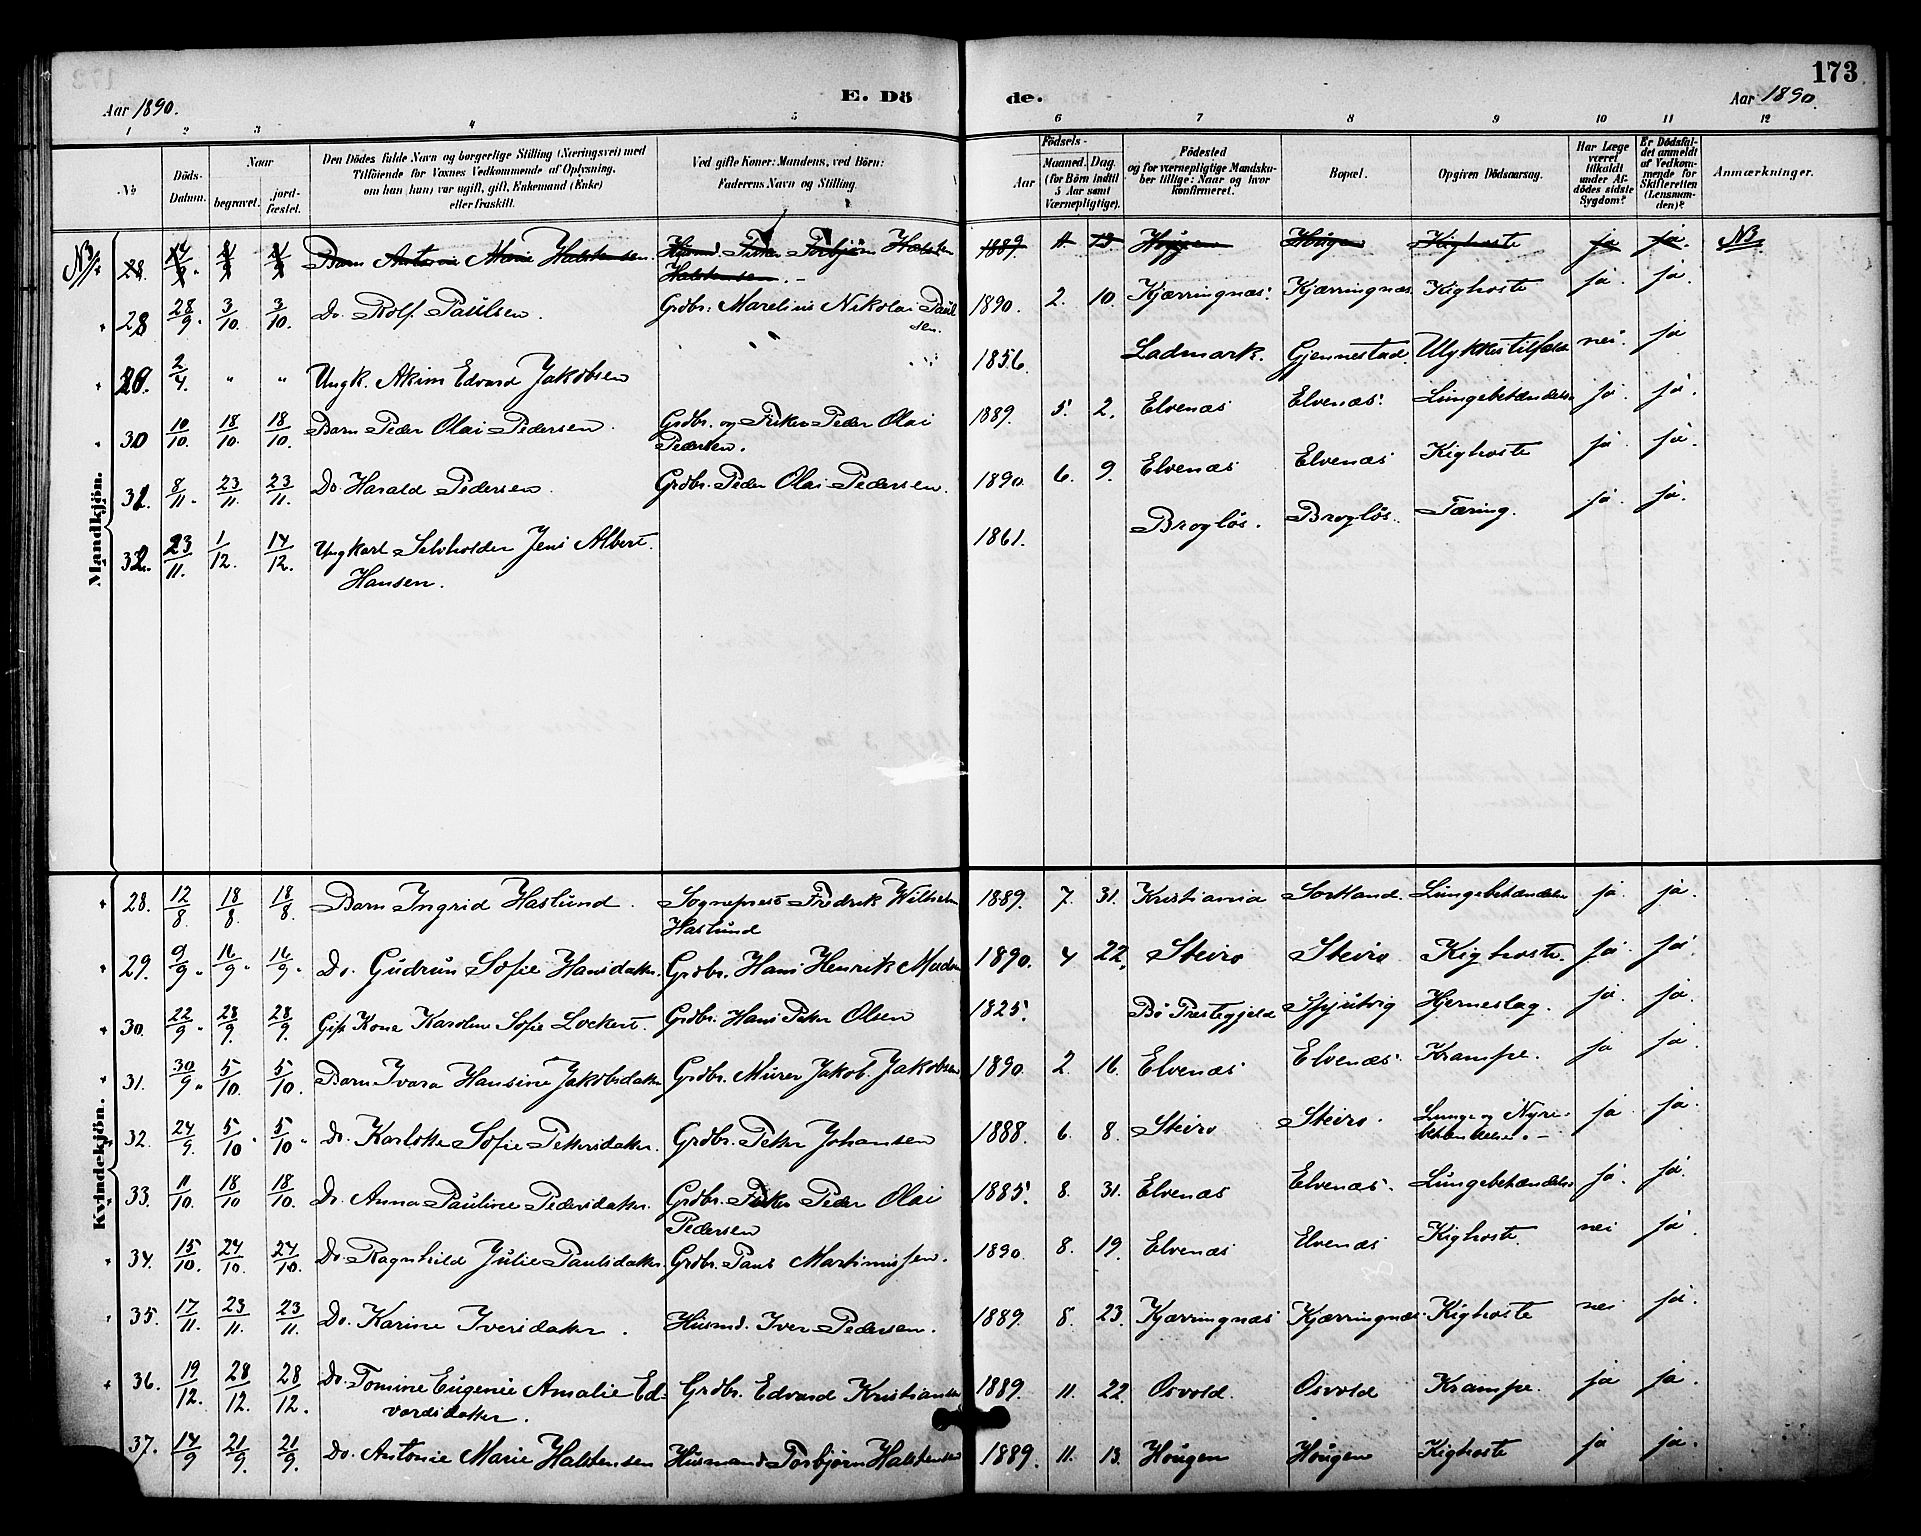 173
Aar 1890.
E. Dö
de.
Aar 1890.
1 2 3 4 5 6 7 8 9 10 11 12
No
Döds-Datum.
Naar begravet. jordfæstet.
Den Dödes fulde Navn og borgerlige Stilling (Næringsvei) med Tilföiende for Voxnes Vedkommende af Oplysning, om han (hun) var ugift, gift, Enkemand (Enke) eller fraskilt.
Ved gifte Koner: Mandens, ved Börn: Faderens Navn og Stilling.
Födsels-
Aar
Maaned. Dag.
(for Börn indtil 5 Aar samt Værnepligtige).
Födested og for værnepligtige Mandskaber tillige: Naar og hvor konfirmeret.
Bopæl.
Opgiven Dödsaarsag.
Har Læge været tilkaldt under Afdödes sidste Sygdom?
Er Dödsfaldet anmeldt af Vedkommende for Skifteretten (Lensmanden)?
Anmærkninger.
Mandkjön.
NB 28. 14/9. 21/9 21/9 Barn Antonie Marie Halstensen. Husmd. Fisker Torbjörn Halsten Halstensen. 1889 11 13. Hougen Hougen Kighoste ja ja. NB
28 28/9. 3/10. 3/10. Do. Rolf Paulsen. Grdbr. Marelius Nikolai Paulsen. 1890. 2. 10. Kjærringnæs. Kjærringnæs. Kighoste ja. ja.
29. 2/4. " " Ungk. Akim Edvard Jakobsen 1856. Ladmark. Gjennestad. Ulykkestilfælde nei. ja
30 10/10. 18/10. 18/10. Barn Peder Olai Pedersen. Grdbr. og Fisker Peder Olai Pedersen. 1889. 5. 2. Elvenæs Elvenæs. Lungebetændelse ja. ja.
31. 8/11. 23/11. 23/11. Do. Harald Pedersen. Grdbr. Peder Olai Pedersen. 1890 6. 9. Elvenæs Elvenæs Kighoste ja. ja.
32. 23/11. 1/12. 14/12. Ungkarl Selvholder Jens Albert Hansen. 1861. Brogløs. Brogløs. Tæring. ja. ja.
Kvindekjön.
28. 12/8. 18/8. 18/8. Barn Ingrid Haslund. Sogneprest Fredrik Wilhelm Haslund 1889. 7. 31. Kristiania Sortland. Lungebetændelse ja. ja.
29. 9/9. 16/9. 16/9. Do. Gudrun Sofie Hansdatter. Grdbr. Hans Henrik Madsen 1890. 4 22. Steiro Steiro Kighoste. ja. ja.
30. 22/9. 28/9. 28/9. Gift Kone Karoline Sofie Lockert. Grdbr. Hans Peter Olsen 1825. Bø Præstegjeld Hjerneslag. ja. ja.
31. 30/9. 5/10. 5/10. Barn Ivara Hansine Jakobsdatter Grdbr. Murer Jakob Jakobsen 1890. 2. 16. Elvenæs Elvenæs. Krampe. ja ja.
32. 24/9. 5/10. 5/10. Do. Karlotte Sofie Petersdatter. Grdbr. Peter Johansen 1888. 6. 8. Steiro Steiro. Lunge og Nyrebetændelse. ja. ja.
33. 11/10. 18/10 18/10. Do. Anna Pauline Pedersdatter. Grdbr. Fisker Peder Olai Pedersen 1885. 8. 31. Elvenæs Elvenæs. Lungebetændelse ja. ja.
34. 15/10. 24/10. 24/10. Do. Ragnhild Julie Paulsdatter Grdbr. Paul Martinussen. 1890. 8. 19. Elvenæs Elvenæs Kighoste. nei ja.
35. 17/11. 23/11. 23/11. Do. Karine Iversdatter. Husmd. Iver Pedersen. 1889. 8. 23. Kjærringnæs Kjærringnæs Kighoste nei ja.
36. 19/12. 28/12. 28/12. Do. Tomine Eugenie Amalie Edvardsdatter. Grdbr. Edvard Kristiansen 1889. 11. 22. Osvold. Osvold Krampe. ja ja.
37. 14/9 21/9. 21/9. Do. Antonie Marie Halstensen Husmand Torbjörn Halstensen 1889. 11. 13. Hougen Hougen Kighoste ja ja.